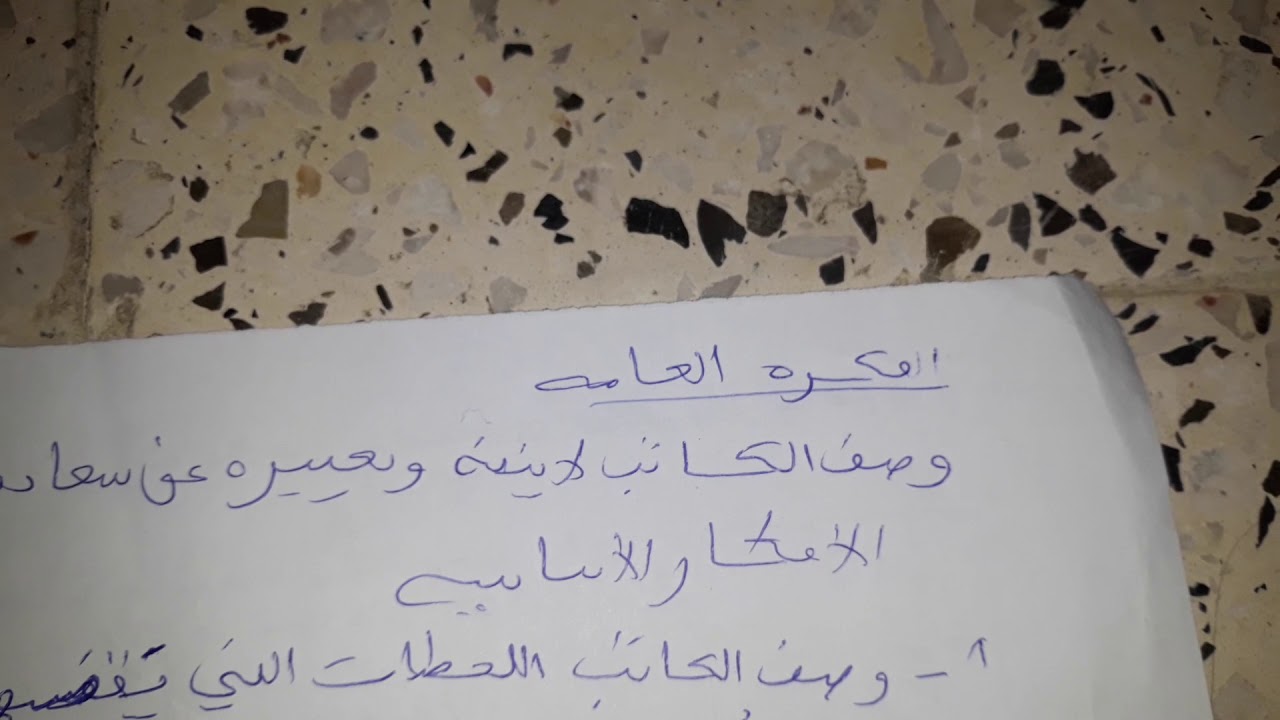 الفكره العامه
وصف الكاتب لابنه وتعبيره عن سعاد
الافكار الأساسيه
١- وصف الكاتب اللحظات التي